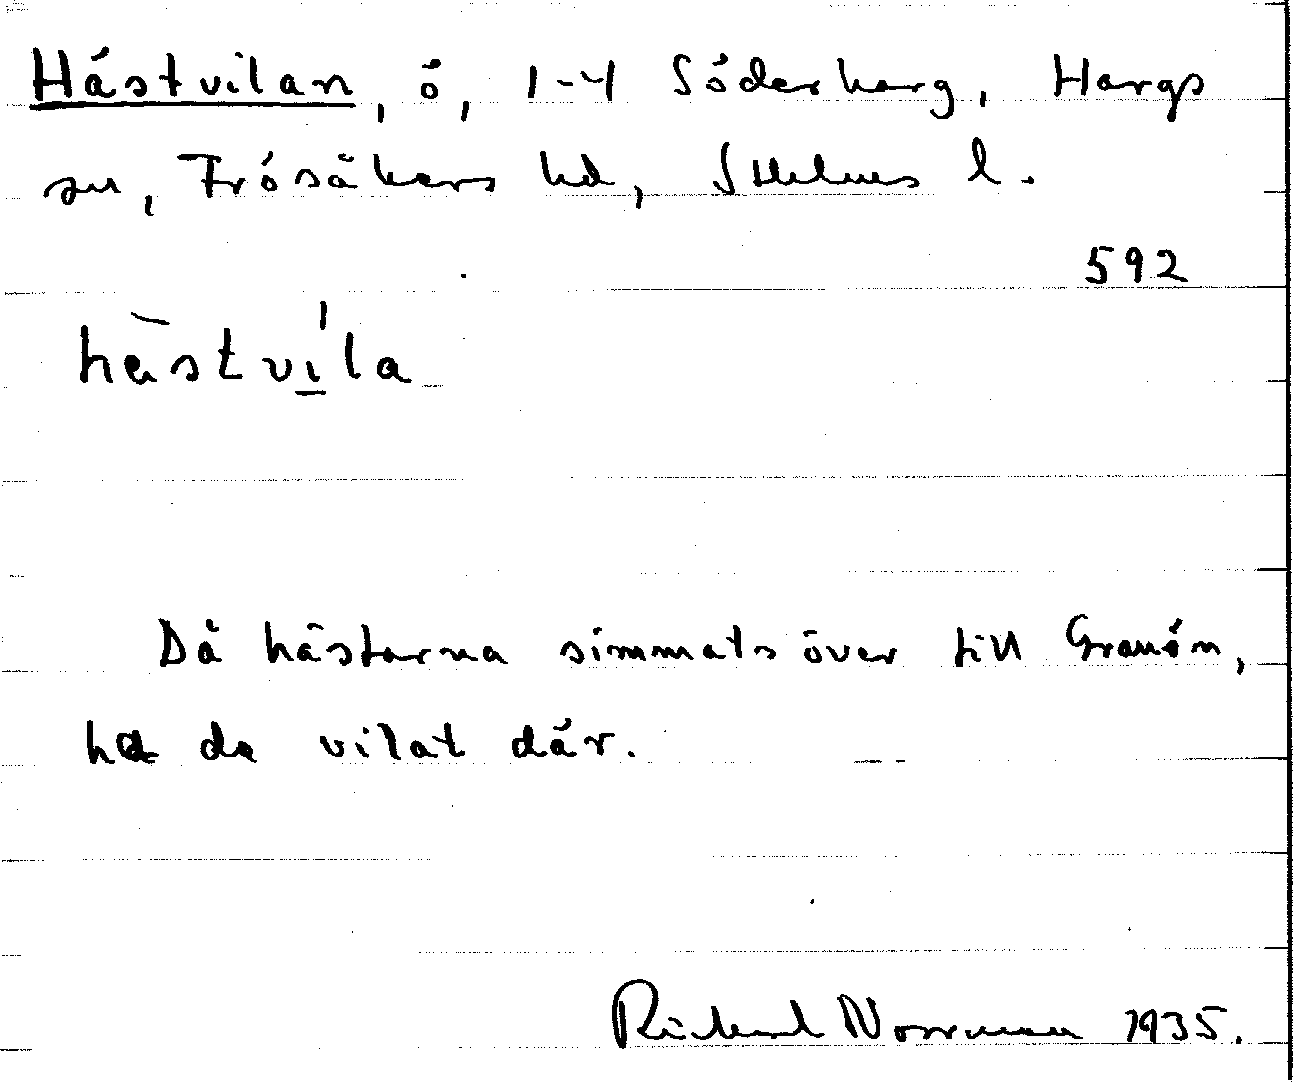 Hästvilan, ö, 1-4 Söderharg, Hargs
sn, Frösåkers hd, Sthlms l.
592
hästvila
Då hästarna simmats över till Granön,
ha de vilat där.
Richard Norrman 1935.